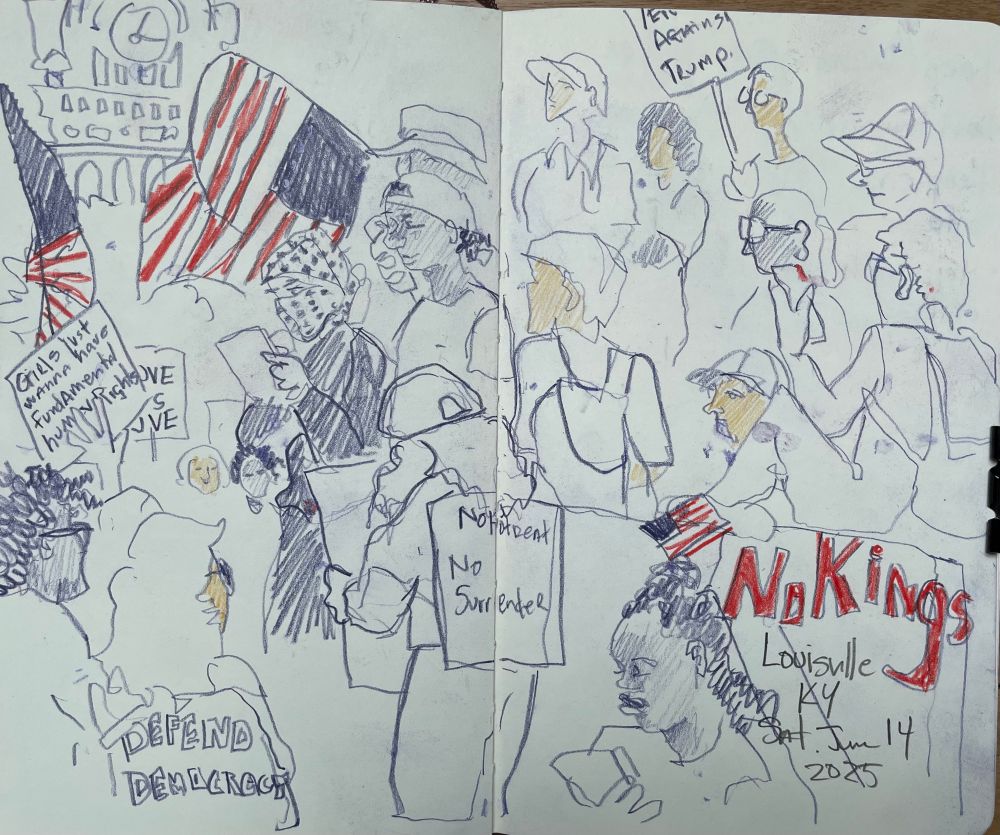 AGAINST
TRUMP.
GIRLS JUST
wanna have
fundamental
human Rights
OVE
S
No
No
Surrender
DEFEND
DEMOCRACY
NoKings
Louisville
KY
Sat. June 14
2025